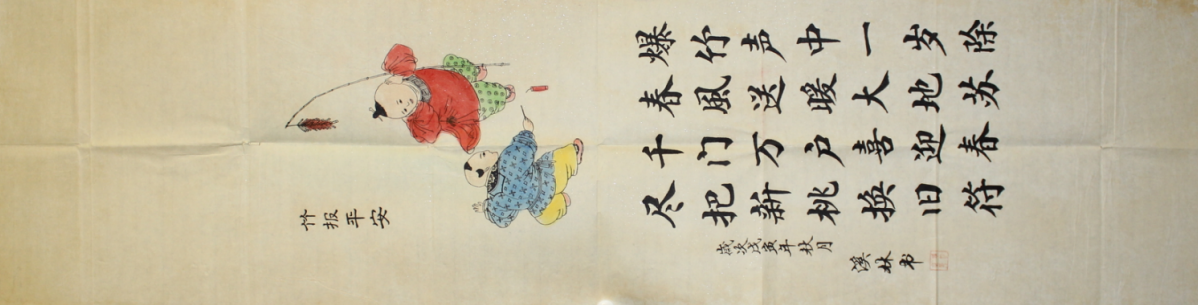 爆竹声中一岁除
春風送暖大地苏
千门万户喜迎春
尽把新桃换旧符
歲次戊寅年秋月
溪林书
竹报平安